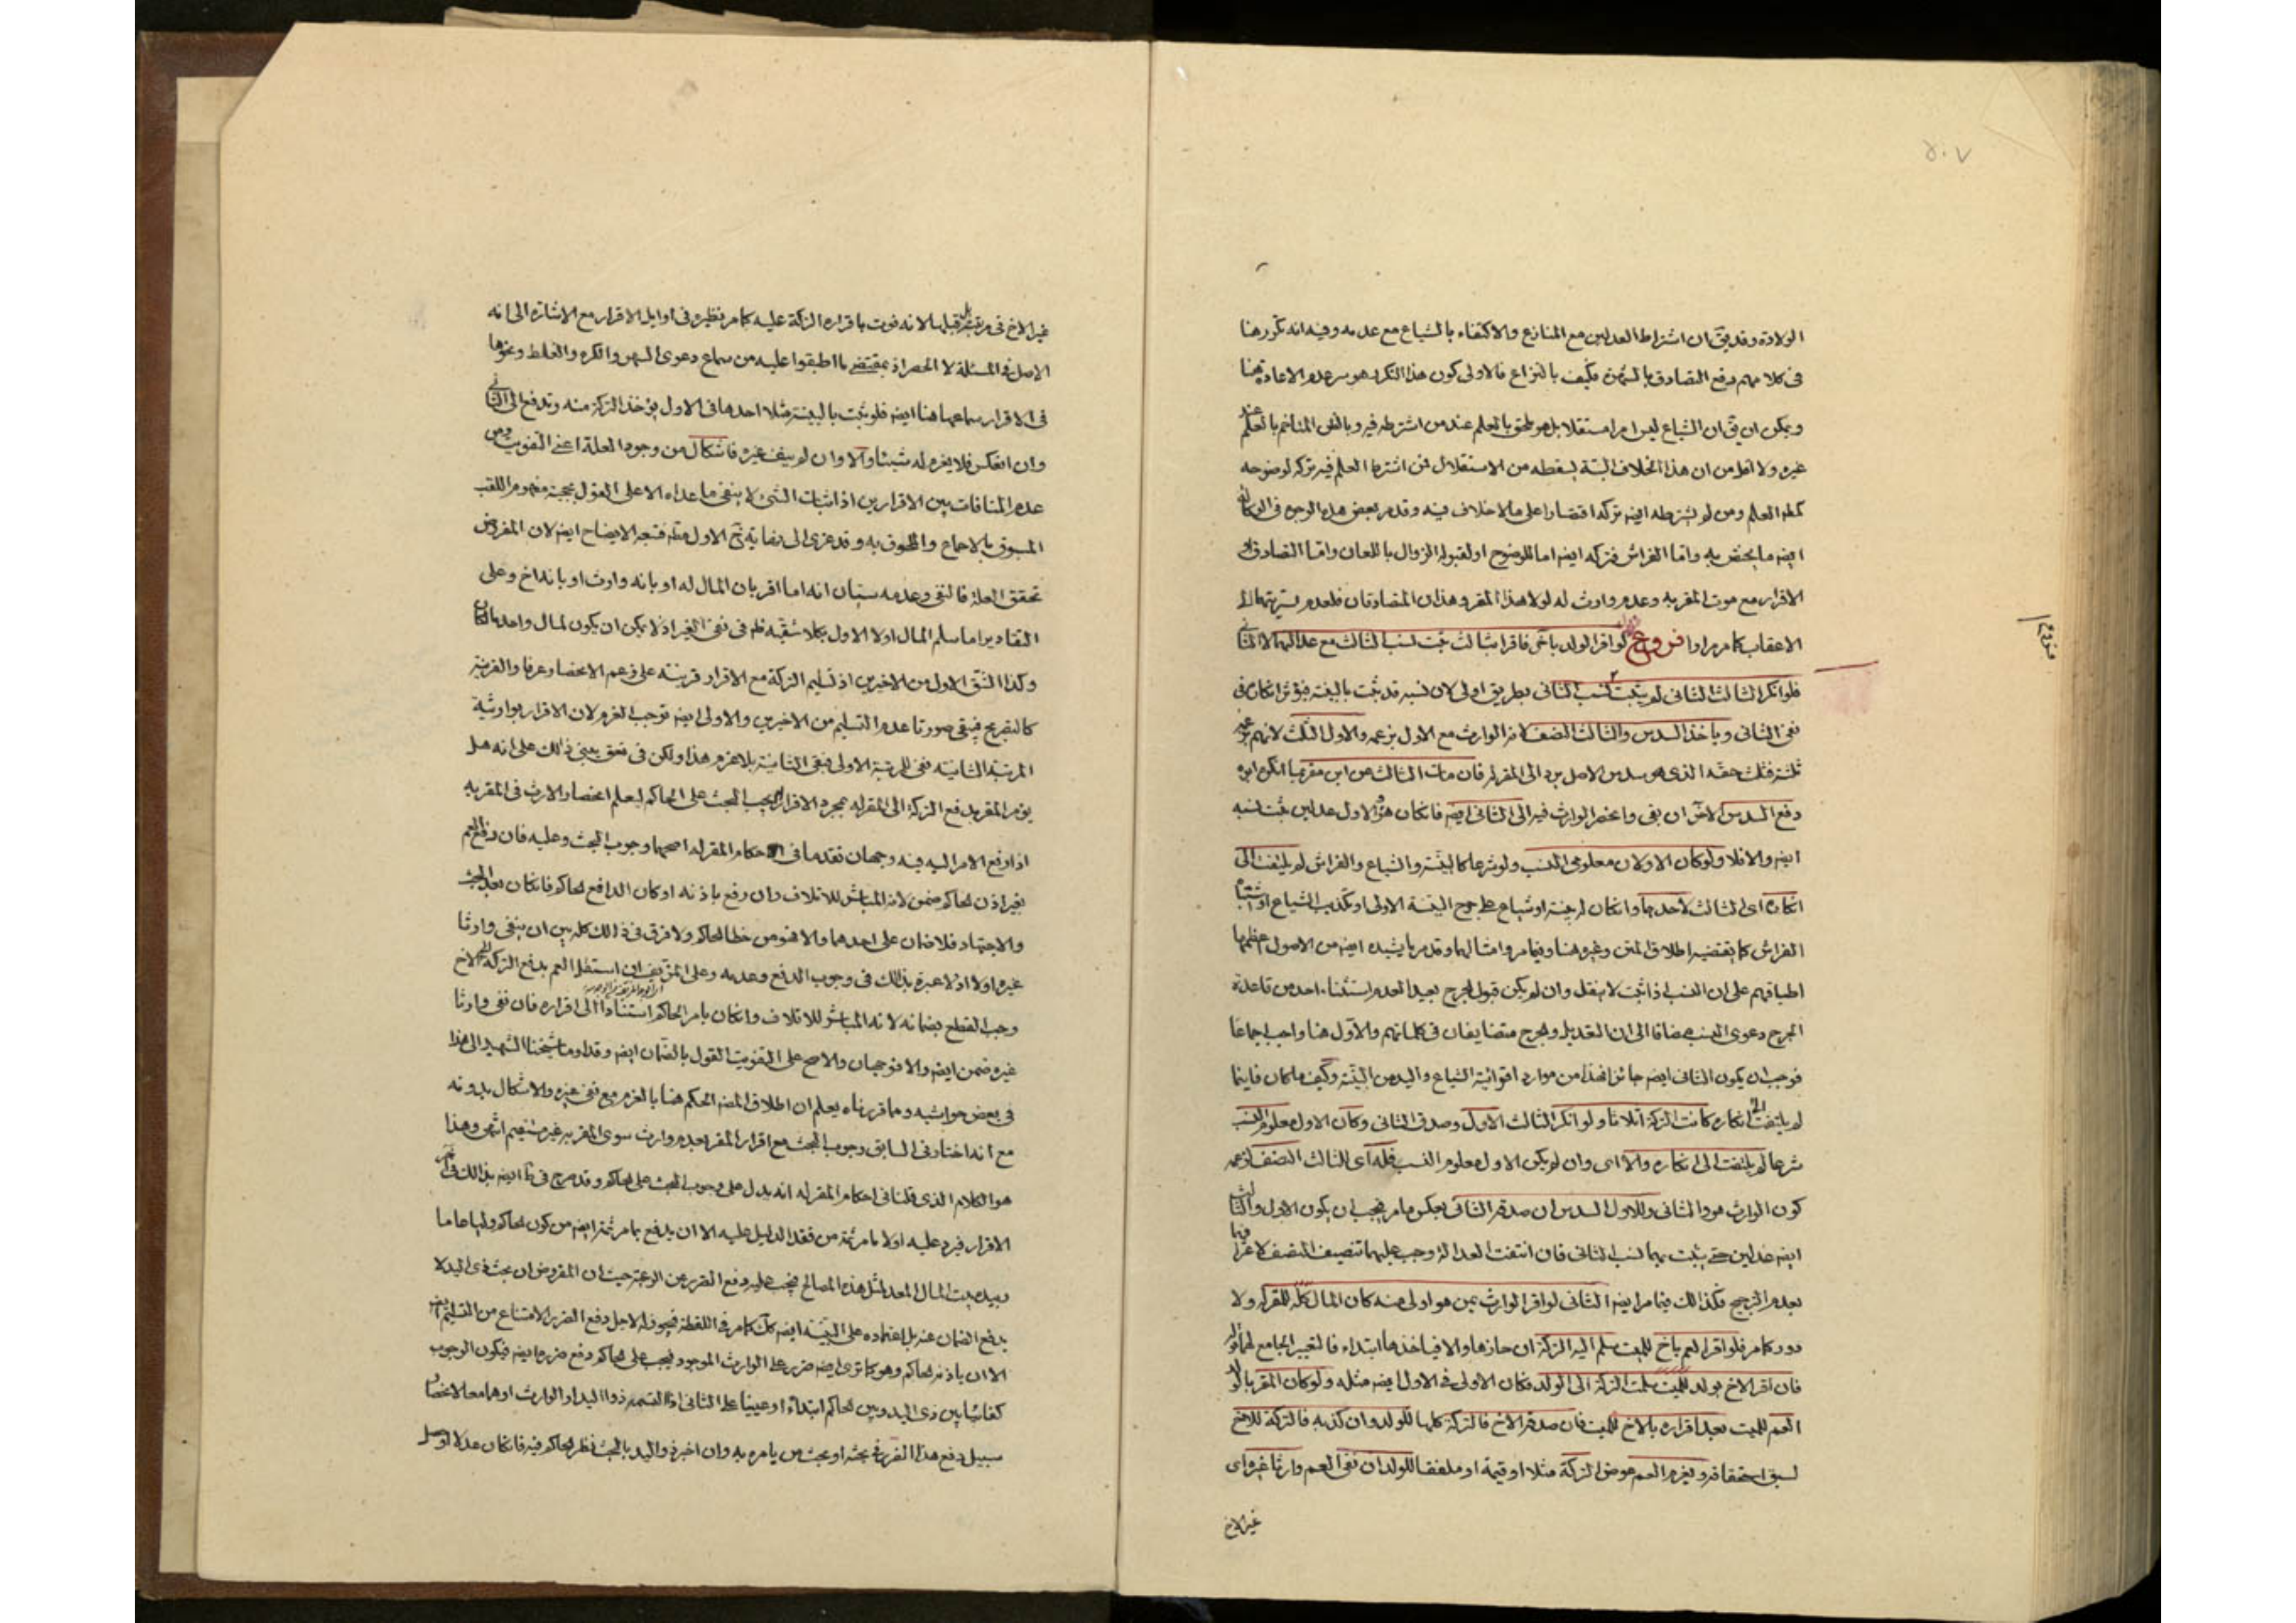 ٥٠٧
الولادة وقد يق ان اشتراط العدلين مع المنازع والاكتفاء بالشياع مع عدمه وفيه انه تكرر هنا
فى كلامهم دفع التصادق بالبينة فكيف بالنزاع فالاولى كون هذا التكرير هو سر عدم الاعادة هنا
ويمكن ان يق ان الشياع ليس امرا مستقلا بل هو ملحق بالعلم عند من اشترطه فيه وبالظن المتاخم بالعلم عند
غيره ولا اقل من ان هذا الخلاف البتة يسقطه من الاستقلال فمن اشترط العلم فيه تركه لوضوحه
كطه العلم ومن لم يشترطه ايضه تركه اقتصارا على ما لا خلاف فيه وقد مر بعض هذه الوجوه فى
ايضه ما يختص به واما الفراش فتركه ايضه اما للوضوح او لقبوله الزوال باللعان واما التصادق
الاقرار مع موت المقر به وعدم وارث له لولا هذا المقر وهذان المتصادقان فلعدم سريتهما الى
الاعقاب كما مر مرارا فروع لو اقر الولد باخر فاقرا بثالث ثبت نسب الثالث مع عدالتهما لا الثانى
فلو انكر الثالث الثانى لم يثبت نسب الثانى بطريق اولى لان نسبه قد ثبت بالبينة فيؤثر انكاره فى
نفى الثانى وياخذ السدس والثالث النصف لانه الوارث مع الاول بزعمه والاول الثلث لانهم بزعمه
ثلثة فثلث حقه الذى هو سدس الاصل يرد الى المقر له فان مات الثالث عن ابن مقر بما انكره ابوه
دفع السدس لاخر ان بقى وانحصر الوارث فيه الى الثانى ايضه فانكان هو والاول عدلين ثبت نسبه
ايضه والا فلا ولو كان الاولان معلومى النسب ولو شرعا كالبينة والشياع والفراش لم يلتفت الى
انكاره اى الثالث لاحدهما وانكان له بينة او شياع على جرح البينة الاولى او تكذيب الشياع او
الفراش كما يقتضيه اطلاق المتن وغيره هنا وفيما مر وامثالهما وقد مر ما يشيده ايضه من الاصول اعظمها
اطباقهم على ان النسب اذا ثبت لا ينتقل وان لم يكن قبول الجرح بعيدا لعدم استثناء احد من قاعدة
الجرح دعوى النسب مضافا الى ان التعديل والجرح متضايفان فى كلماتهم والاول هنا واجب اجماعا
فوجب ان يكون الثانى ايضه جائزا فهذا من موارد اقوائية الشياع واليد من البينة وكيف ماكان فاينما
لم يلتفت الى انكاره كانت التركة اثلاثا ولو انكر الثالث الاول وصدق الثانى وكان الاول معلوم النسب
شرعا لم يلتفت الى انكاره والا اى وان لم يكن الاول معلوم النسب فله اى للثالث النصف لزعمه
كون الوارث هو والثانى وللاول السدس ان صدقه الثانى بعكس ما مر فيجب ان يكون الاول والثالث
ايضه عدلين حتى يثبت بهما نسب الثانى فان انتفت العدالة وجب عليهما تنصيف النصف لا غرا فيها
بعدم الترجيح فكذالك فيما مر ايضه الثانى لو اقر الوارث بمن هو اولى منه كان المال كله للمقر له ولا
دور كما مر فلو اقر العم باخ للميت سلم اليه التركة ان حازها والا فياخذها ابتداء فالتعبير الجامع لهما اولى
فان اقر الاخ بولد للميت سلمت التركة الى الولد فكان الاولى فى الاول ايضه مثله ولو كان المقر بالولد
العم للميت بعد اقراره بالاخ للميت فان صدقه الاخ فالتركة كلها للولد وان كذبه فالتركة للاخ
لسبق استحقاقه ويغرم العم عوض التركة مثلا او قيمة او ملفقا للولد ان نفى العم وارثا غيره اى
غير الاخ
فروع
غير الاخ فى مرتبته قبلها لانه فوت باقراره التركة عليه كما مر نظيره فى اوايل الاقرار مع الاشارة الى انه
الاصل فى المسئلة لا الحصر اذ بمقتضى ما اطبقوا عليه من سماع دعوى السهو والكره والغلط ونحوها
فى الاقرار سماعها هنا ايضه فلو ثبت بالبينة مثلا احدها فى الاول يؤخذ التركة منه وتدفع الى الثانى
وان انعكس فلا يغرم له شيئا والا وان لم ينف غيره فاشكال من وجود العلة اعنى التفويت ومن
عدم المنافات بين الاقرارين اذ اثبات الشئ لا ينفى ما عداه الا على القول بحجية مفهوم اللقب
المسبوق بالاجماع والملحوق به وقد عزى الى نفايته تج الاول منه فتجه الايضاح ايضه لان المفروض
تحقق العلة فالنفى وعدمه سيان انه اما اقر بان المال له او بانه وارث او بانه اخ وعلى
التقادير اما سلم المال اولا الاول بكلا شقيه نص فى نفى الغير اذ لا يمكن ان يكون المال واحد
وكذا الشق الاول من الاخيرين اذ تسليم التركة مع الاقرار قرينة على زعم الانحصار عرفا والقرينة
كالتصريح فيبقى صورتا عدم التسليم من الاخيرين والاولى ايضه توجب الغرم لان الاقرار بوارثية
المرتبة الثانية نفى للمرتبة الاولى فبقى الثانية بلا غرم هذا ولكن فى تعق يبنى ذالك على انه هل
يؤمر المقر بدفع التركة الى المقر له بمجرد الاقرار ام يجب البحث على الحاكم ليعلم انحصار الارث فى المقر به
اذا رفع الامر اليه فيه وجهان تقدما فى احكام المقر له اصحهما وجوب البحث وعليه فان دفع العم
بغير اذن الحاكم ضمن لانه المباشر للاتلاف وان دفع باذنه او كان الدافع الحاكم فانكان بعد البحث
والاجتهاد فلا ضمان على احدهما والا فهو من خطا الحاكم ولا فرق فى ذالك كله بين ان ينفى وارثا
غيره اولا اذ لا عبرة بذالك فى وجوب الدفع وعدمه وعلى المزيف ان استقل العم بدفع التركة الى الاخ
وجب القطع بضمانه لانه المباشر للاتلاف وانكان بامر الحاكم استنادا الى اقراره فان نفى وارثا
غيره ضمن ايضه والا فوجهان والاصح على التفويت القول بالضمان ايضه وقد اومأ شيخنا الشهيد الى هذا
فى بعض حواشيه ومما قررناه يعلم ان اطلاق المصه الحكم هنا بالغرم مع نفى غيره والاشكال بدونه
مع انه اختار فى السابق وجوب البحث مع اقرار المقر بعدم وارث سوى المقر به غير مستقيم انتهى وهذا
هو الكلام الذى قلنا فى احكام المقر له انه يدل على وجوب البحث على الحاكم وقد صرح فى ايضه بذالك فى اخر
الاقرار فيرد عليه اولا ما مر ثمة من فقد الدليل عليه الا ان يدفع بما مر ثمة ايضه من كون الحاكم وليا عاما
وبيده بيت المال المعد لمثل هذه المصالح فيجب عليه دفع الضرر عن الرعية حيث ان المفروض ان بحث ذى اليد لا
يدفع الضمان عنه بل اعتماده على البينة ايضه كك كما مر فى اللقطة فيجوز له لاجل دفع الضرر الامتناع من التسليم ايضه
الا ان ياذنه الحاكم وهو كما ترى ايضه ضرر على الوارث الموجود فيجب على الحاكم دفع ضررهما ايضه فيكون الوجوب
كفائيا بين ذى اليد وبين الحاكم ابتداء او عينيا على الثانى اذا التمسه ذوا اليد او الوارث او هما معا لانحصار
سبيل دفع هذا الضرر فى بحثه او بحث من يامره به وان اخبر ذو اليد بالبحث نظر الحاكم فيه فانكان عدلا